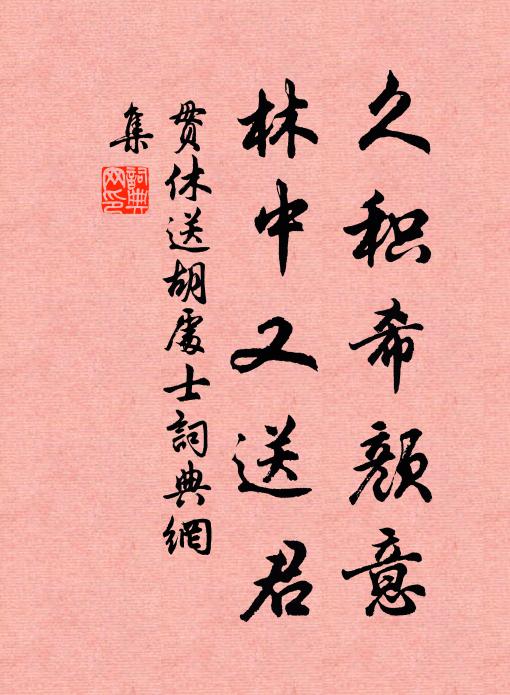 久积希颜意
林中又送君
贯休送胡處士詞典網
集
詞典网印